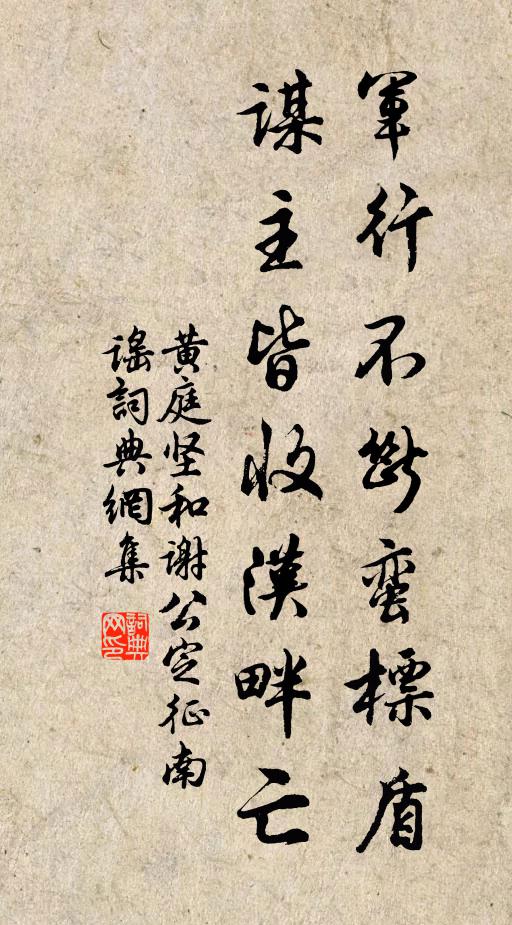 軍行不斷蛮標盾
謀主皆收漢畔亡
黄庭坚和谢公定征南
谣詞典網集
詞典网印